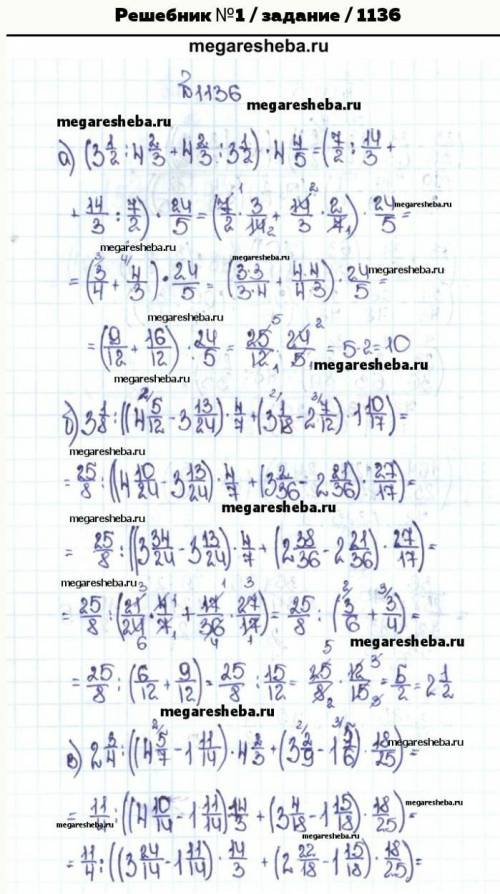 Решебник №1 / задание / 1136
megaresheba.ru
№1136
megaresheba.ru
megaresheba.ru
а) (3 1/2 : 4 2/3 + 4 2/3 : 3 1/2) · 4 4/5 = (7/2 : 14/3 +
+ 14/3 : 7/2) · 24/5 = (7/2 · 3/14 + 14/3 · 2/7) · 24/5 =
megaresheba.ru
megaresheba.ru
megaresheba.ru
= (3/4 + 4/3) · 24/5 = (3·3/3·4 + 4·4/4·3) · 24/5 =
megaresheba.ru
megaresheba.ru
= (9/12 + 16/12) · 24/5 = 25/12 · 24/5 = 5·2=10
megaresheba.ru
megaresheba.ru
б) 3 1/8 : ((4 5/12 - 3 13/24) · 4/7 + (3 1/18 - 2 7/12) · 1 10/17) =
megaresheba.ru
= 25/8 : ((4 10/24 - 3 13/24) · 4/7 + (3 2/36 - 2 21/36) · 27/17) =
megaresheba.ru
megaresheba.ru
= 25/8 : ((3 34/24 - 3 13/24) · 4/7 + (2 38/36 - 2 21/36) · 27/17) =
megaresheba.ru
= 25/8 : (21/24 · 4/7 + 17/36 · 27/17) = 25/8 : (3/6 + 3/4) =
megaresheba.ru
= 25/8 : (6/12 + 9/12) = 25/8 : 15/12 = 25/8 · 12/15 = 5/2 = 2 1/2
megaresheba.ru
в) 2 3/4 : ((4 5/7 - 1 11/14) · 4 2/3 + (3 2/9 - 1 5/6) · 18/25) =
megaresheba.ru
= 11/4 : ((4 10/14 - 1 11/14) · 14/3 + (3 4/18 - 1 15/18) · 18/25) =
megaresheba.ru
megaresheba.ru
megaresheba.ru
= 11/4 : ((3 24/14 - 1 11/14) · 14/3 + (2 22/18 - 1 15/18) · 18/25) =